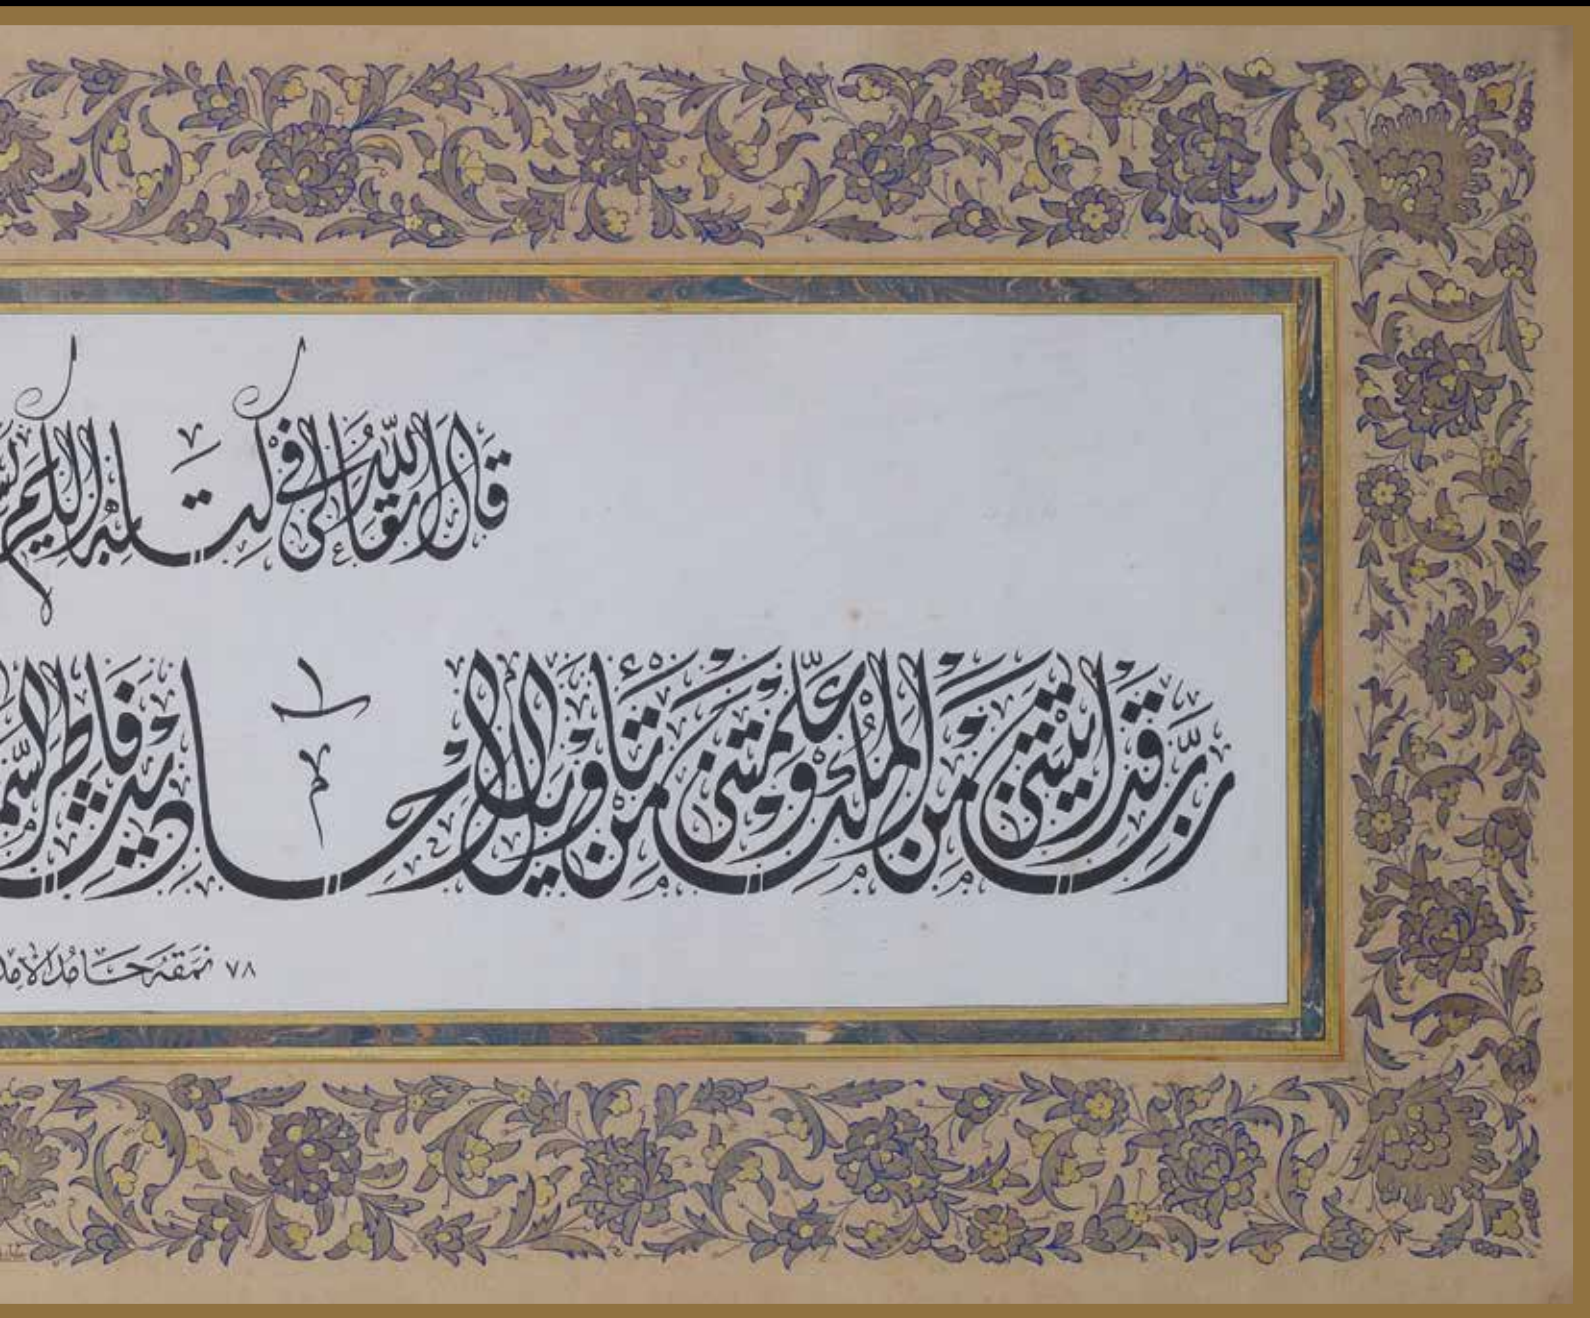 قَالَ اللّٰهُ تَعَالَى فِي كِتَابِهِ الْكَرِيمِ
رَبِّ قَدْ اٰتَيْتَنِي مِنَ الْمُلْكِ وَعَلَّمْتَنِي مِنْ تَأْوِيلِ الْاَحَادِيثِ فَاطِرَ
٧٨ نَمَقَهُ حَامِدُ